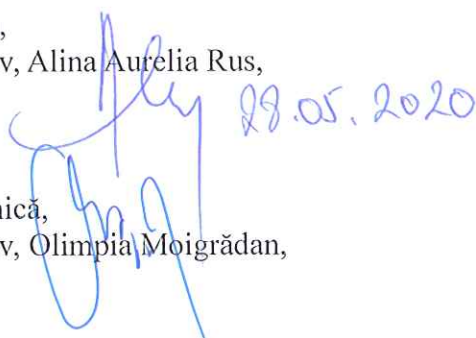 ,
v, Alina Aurelia Rus,
28.05.2020
nică,
v, Olimpia Moigrădan,